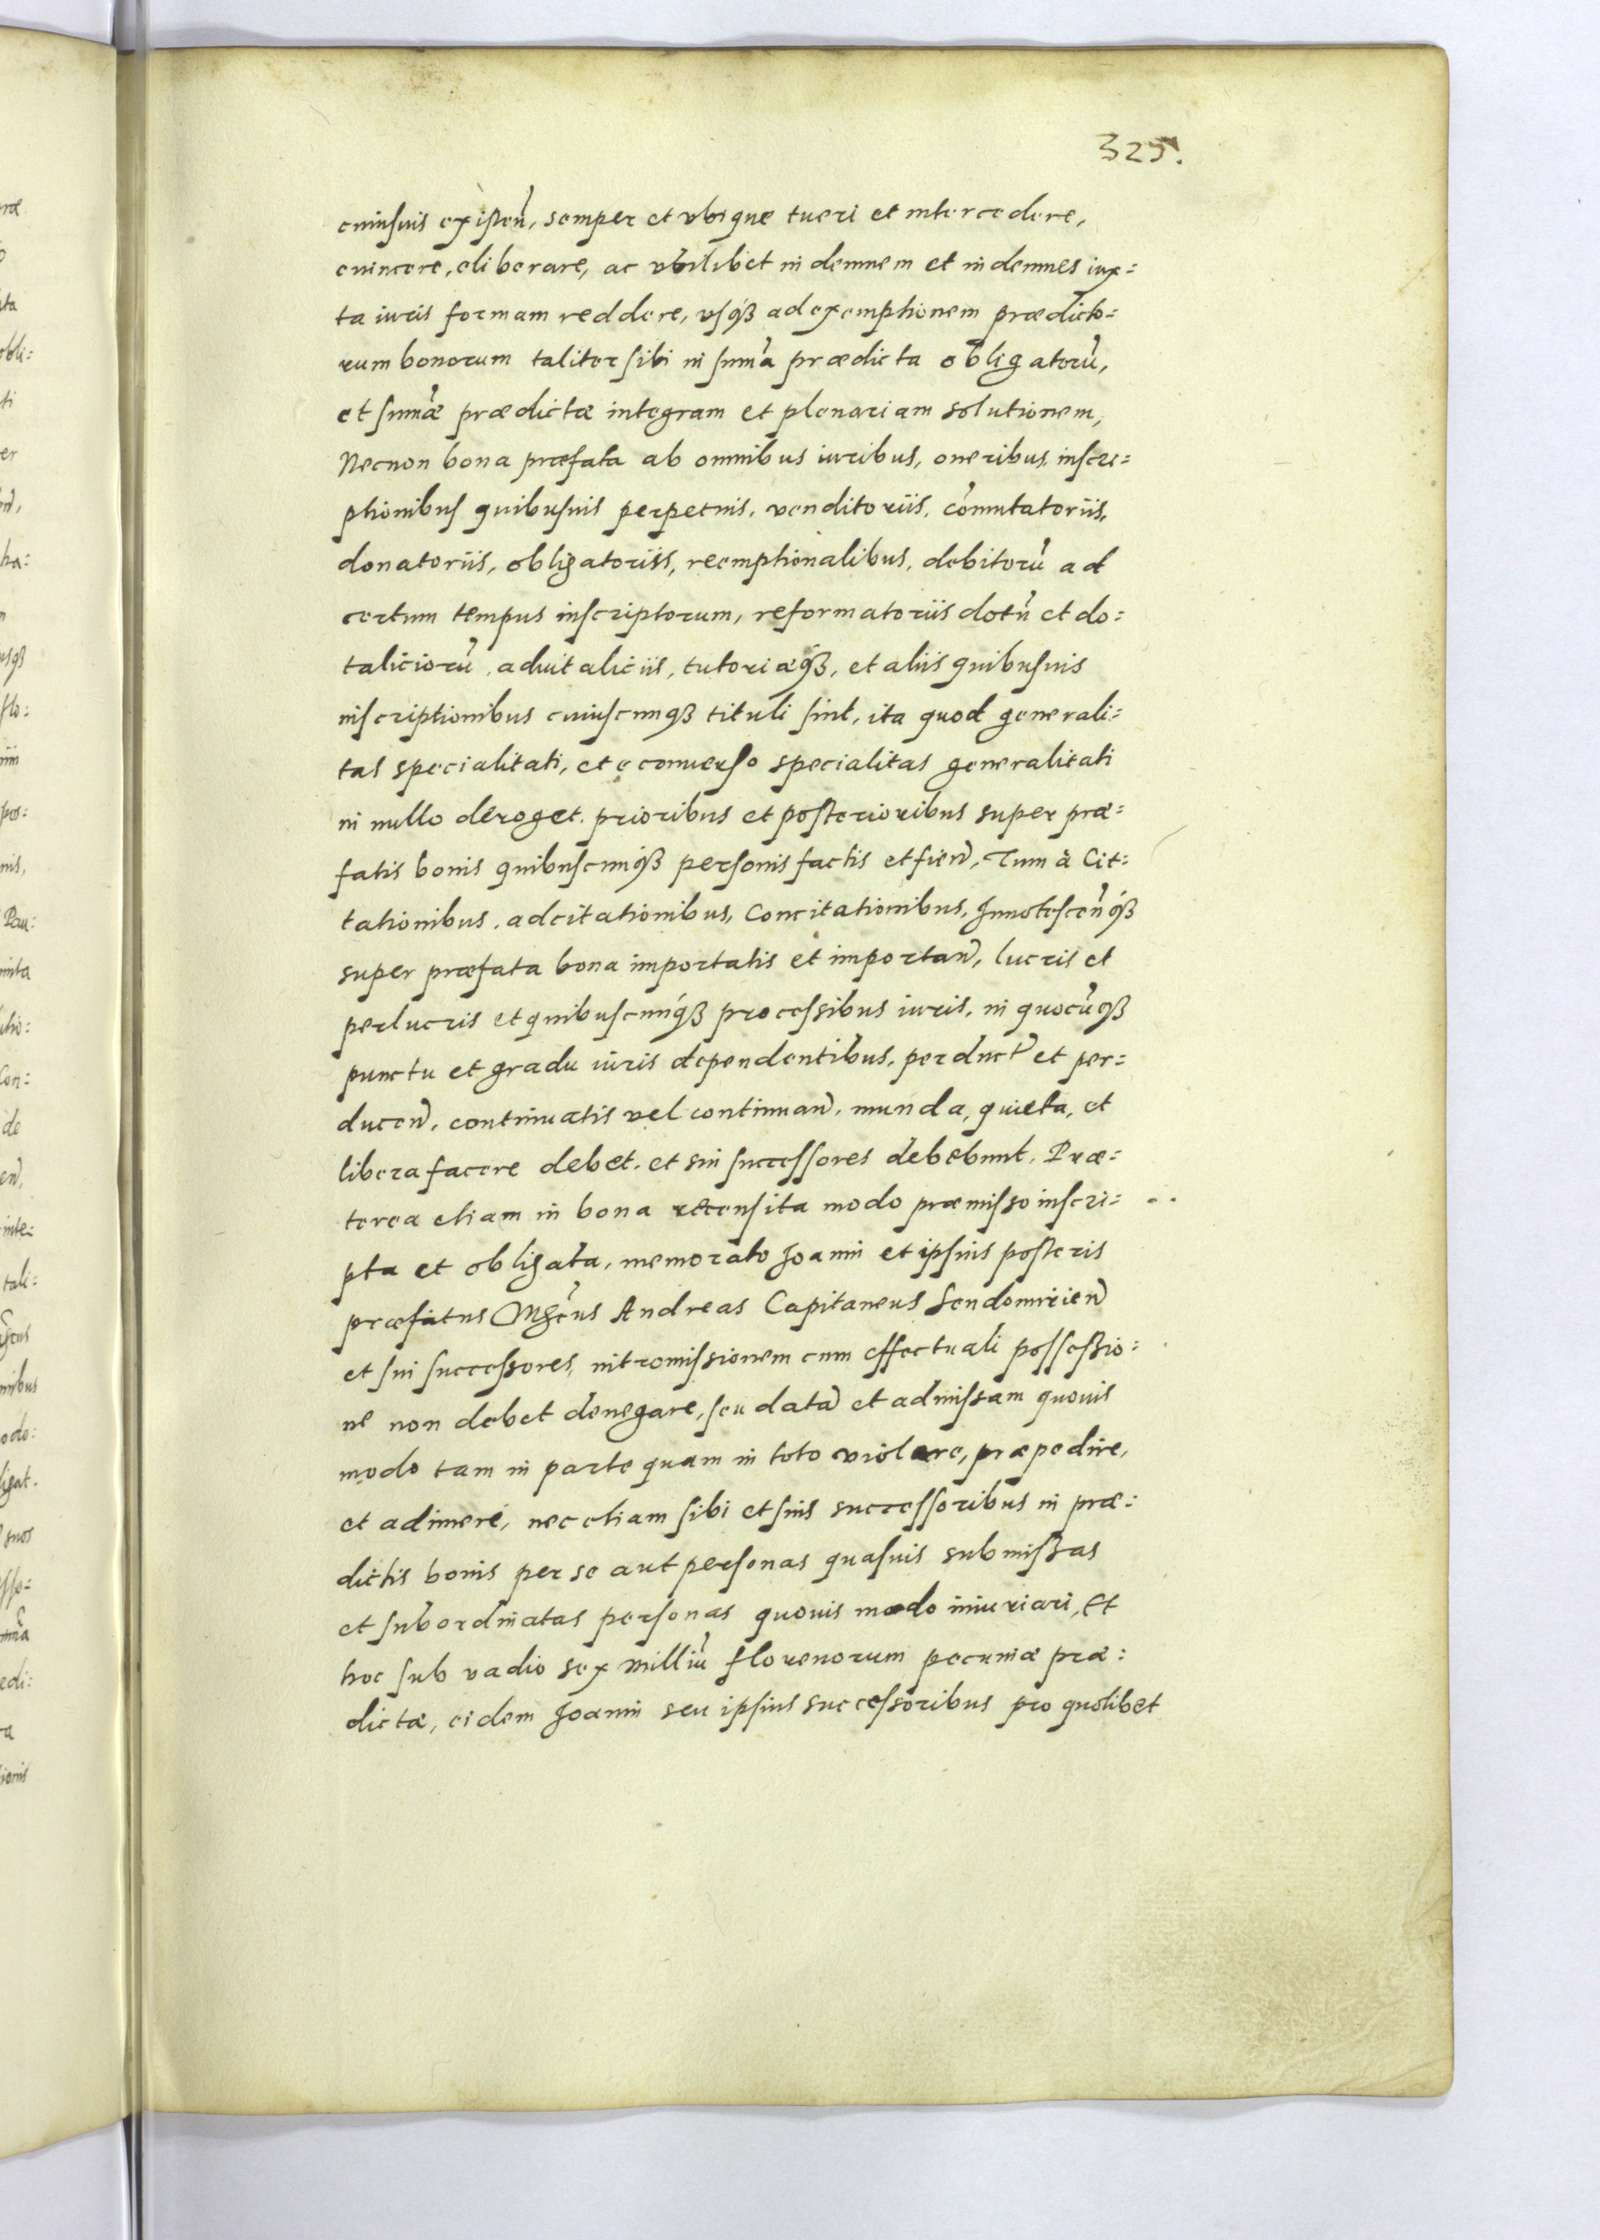 325.
cuiusuis existen̄, semper et vbique tueri et intercedere,
euincere, eliberare, ac vbilibet indemnem et indemnes iux=
ta iuris formam reddere, vsq́ꝫ ad exemptionem prædicto=
rum bonorum taliter sibi in sum̄a prædicta obligatorū,
et sum̄æ prædictæ integram et plenariam solutionem,
Necnon bona præfata ab omnibus iuribus, oneribus, inscri=
ptionibus quibusuis perpetuis, venditoriis, com̄utatoriis,
donatoriis, obligatoriis, reemptionalibus, debitorū ad
certum tempus inscriptorum, reformatoriis dotū et do=
taliciorū, aduitaliciis, tutoriaq́ꝫ, et aliis quibusuis
inscriptionibus cuiuscunqꝫ tituli sint, ita quod generali=
tas specialitati, et e conuerso specialitas generalitati
in nullo deroget. prioribus et posterioribus super præ=
fatis bonis quibuscunq́ꝫ personis factis et fien̄, Tum à Cit=
tationibus, adcitationibus, Concitationibus, Innotescen̄q́ꝫ
super præfata bona importatis et importan̄, lucris et
perlucris et quibuscunq́ꝫ processibus iuris, in quocūqꝫ
punctu et gradu iuris dependentibus, perduct̄ et per=
ducen̄, continuatis vel continuan̄, munda, quieta, et
libera facere debet, et sui successores debebunt. Præ=
terea etiam in bona recensita modo præmisso inscri=
pta et obligata, memorato Joanni et ipsius posteris
præfatus Mgc̄us Andreas Capitaneus Sendomirien̄
et sui successores, intromissionem cum effectuali possessio=
ne non debet denegare, seu datā et admissam quouis
modo tam in parte quam in toto violare, præpedire,
et adimere, nec etiam sibi et suis successoribus in præ=
dictis bonis per se aut personas quasuis submissas
et subordinatas personas quouis modo iniuriari, Et
hoc sub vadio sex milliū florenorum pecuniæ præ=
dictæ, eidem Joanni seu ipsius successoribus pro quolibet